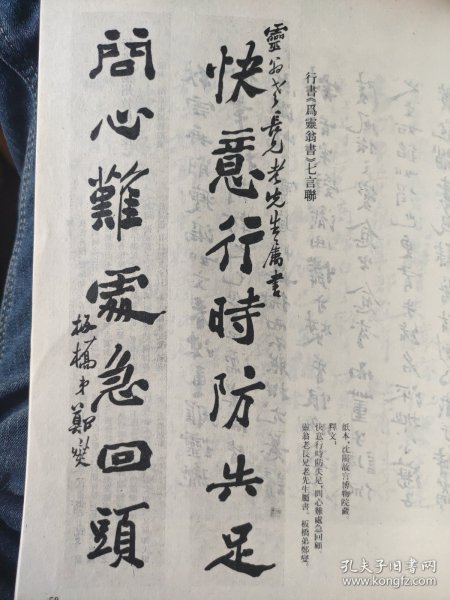 行書《爲靈翁書》七言聯
靈翁老長兄老先生屬書
快意行時防失足
問心難處急回頭
板橋弟鄭燮
紙本，沈陽故宮博物院藏
釋文：
快意行時防失足，問心難處急回顧
靈翁老長兄老先生屬書。板橋弟鄭燮。
孔夫子旧书网